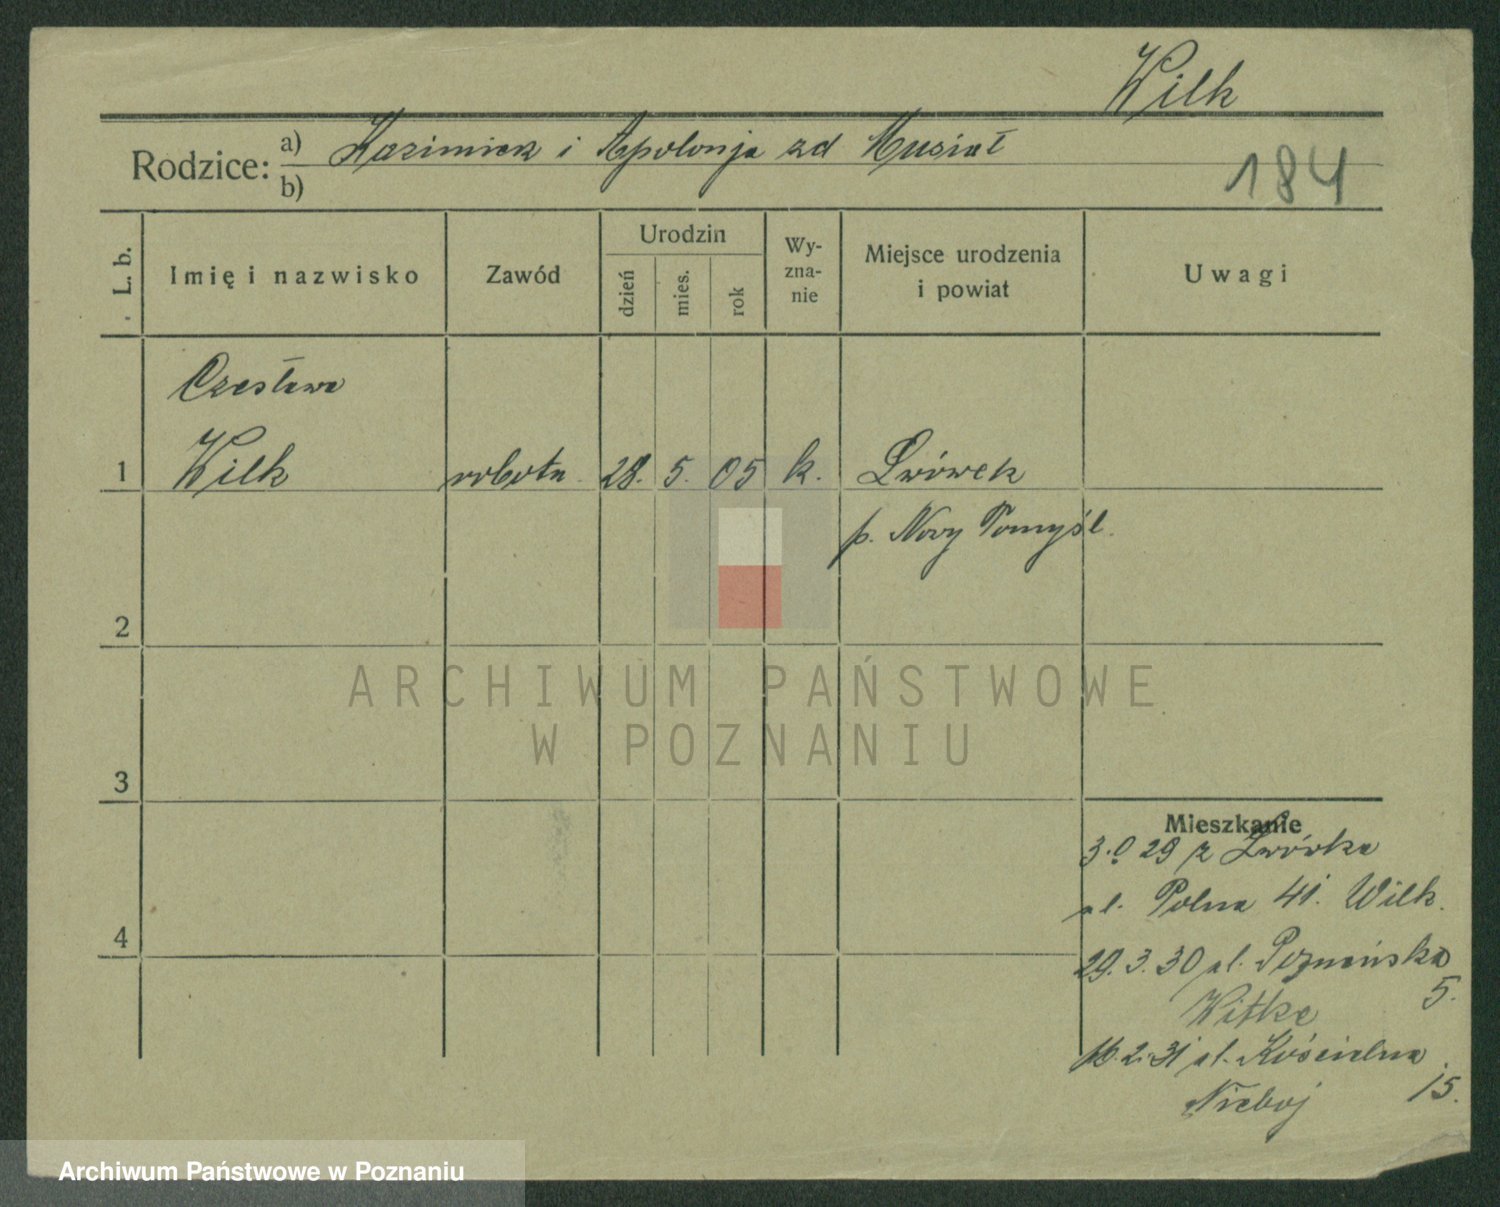 Wilk
Rodzice: a) Kazimierz i Apolonja zd Musiał
b)
184
L. b.
Imię i nazwisko
Zawód
Urodzin
dzień
mies.
rok
Wy-
zna-
nie
Miejsce urodzenia
i powiat
Uwagi
Czesława
1 Wilk robotn. 28. 5. 05 k. Lwówek
p. Nowy Tomyśl.
2
ARCHIWUM PAŃSTWOWE
W POZNANIU
3
Mieszkanie
29 z Lwówka
ul. Polna 41. Wilk.
4
29. 3. 30 ul. Poznańska
5.
Witke
16. 2. 31 ul. Kościelna
15.
Nieboj
Archiwum Państwowe w Poznaniu